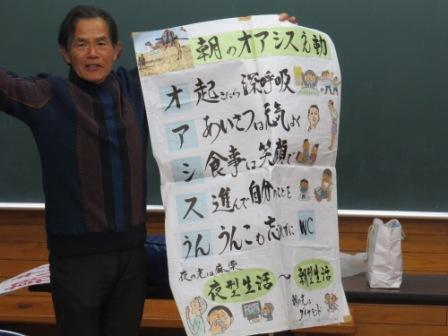 朝のオアシスうん動
オ 起きたら深呼吸
ア あいさつは元気よく
シ 食事は笑顔で
ス 進んで自分のことを
うん うんこも忘れずに WC
夜の光は麻薬
夜型生活 〜 朝型生活
朝の光はダイヤモンド